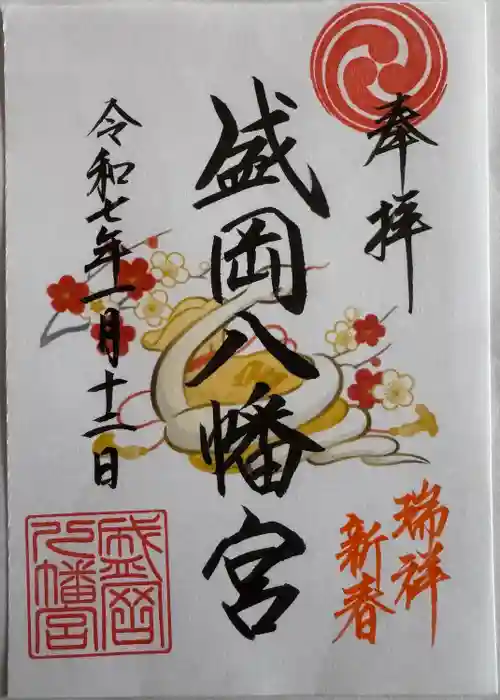 奉拝
盛岡八幡宮
令和七年一月十二日
瑞祥
新春
盛岡
八幡宮